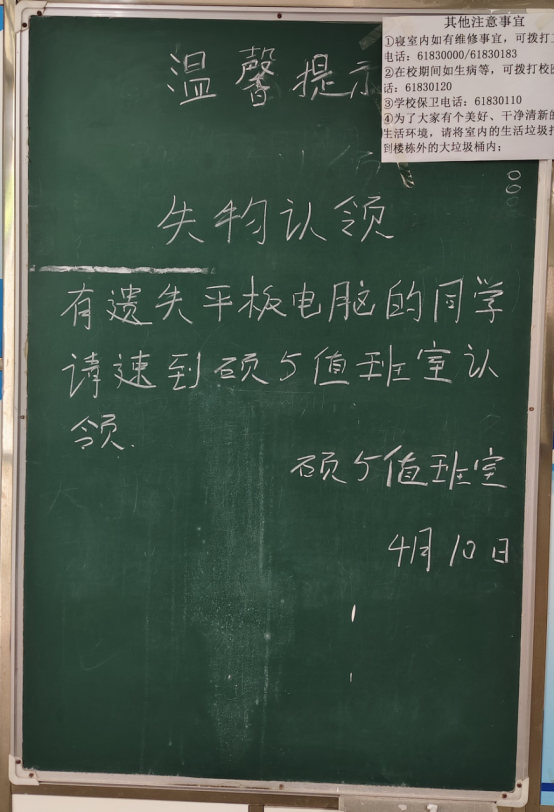 温馨提示
其他注意事宜
①寝室内如有维修事宜，可拨打
电话：61830000/61830183
②在校期间如生病等，可拨打校
话：61830120
③学校保卫电话：61830110
④为了大家有个美好、干净清新的
生活环境，请将室内的生活垃圾打
到楼栋外的大垃圾桶内；
失物认领
有遗失平板电脑的同学
请速到硕5值班室认
领.
硕5值班室
4月10日